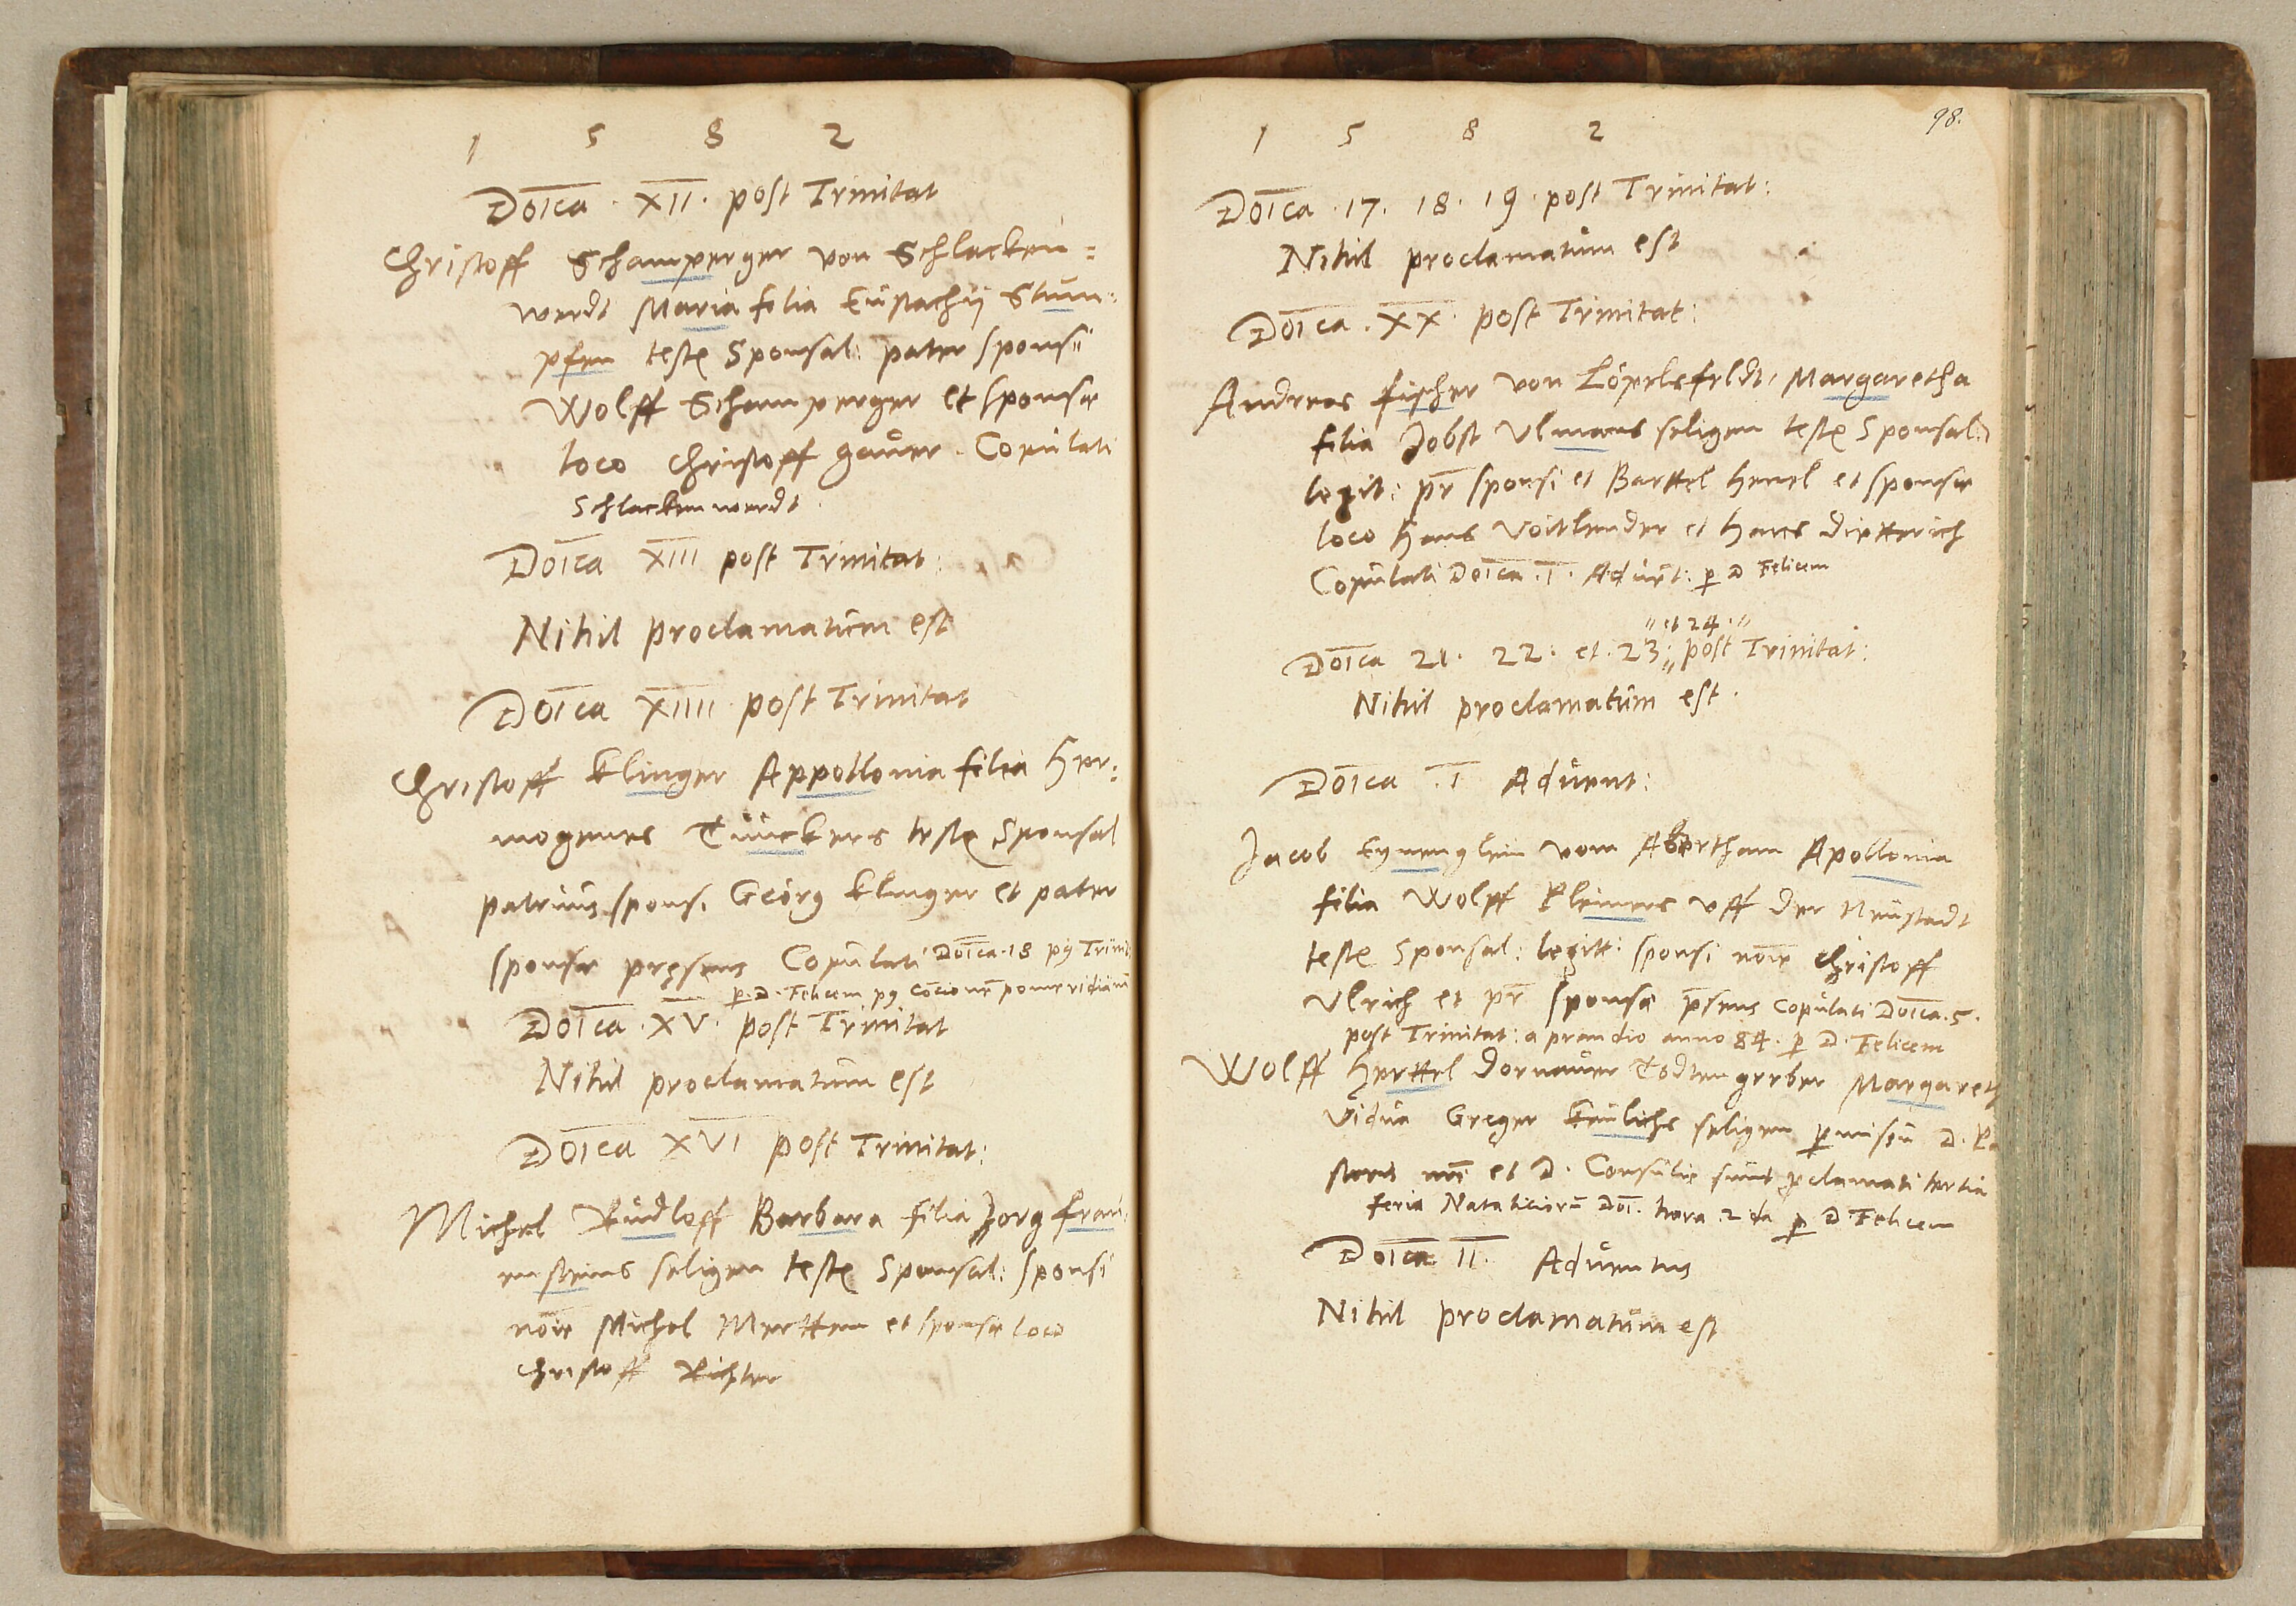 1 5 8 2
Doīca · XII · post Trinitat
Christoff Schamperger von Schlacken=
werdt Maria filia Eustachij Stum=
pfen teste Sponsal: pater sponsi
Wolff Schamperger et sponsæ
loco Christoff Geüer. Copulati
Schlackenwerdt.
Doīca XIII post Trinitat:
Nihil proclamatum est
Doīca XIIII post Trinitat
Christoff Klinger Appollonia filia Her=
mogenes Tünckers teste Sponsal
patruus sponsi Georg Klinger et pater
sponsæ pręsens Copulati Doīca · 18 p9 Trinit
p D. Felicem p9 cōcionē pomeridianā
Doīca · XV · post Trinitat
Nihil proclamatum est
Doīca XVI post Trinitat:
Michel Rudloff Barbara filia Jorg Frau
ensteins seligen teste Sponsal: sponsi
noīe Michel Mertten et sponsæ loco
Christoff Richter
98.
1 5 8 2
Doīca · 17 · 18 · 19 · post Trinitat:
Nihil proclamatum est
Doīca · XX · post Trinitat:
Andreas Fischer von Löpelsfeldt, Margaretha
filia Jobst Ulmans seligen teste Sponsal:
legit: pr̄ sponsi et Barttel Henel et sponsæ
loco Hans Voitlender et Hans Dietterich
Copulati Doīca · I · Aduēt: p D Felicem
" et 24 · "
Doīca 21 · 22 · et · 23 · post Trinitat:
Nihil proclamatum est ·
Doīca · I Aduent:
Jacob Eynenglein vom Abertham Apollonia
filia Wolff Kleiners vff der Neustadt
teste Sponsal: legitt: sponsi noīe Christoff
Ulrich et pr̄ sponsæ p̄sens Copulati Doīca · 5 ·
post Trinitat: a prandio anno 84 · p D · Felicem
Wolff Herttel Dornauer Todtengreber Margareth
Vidua Greger Keulichs seligen pmissu D. Pa
storis mei et D · Consulis sunt pclamati tertia
feria Nataliciorū Doī · hora · 2 da p D · Felicem
Doīca II · Aduentus
Nihil proclamatum est